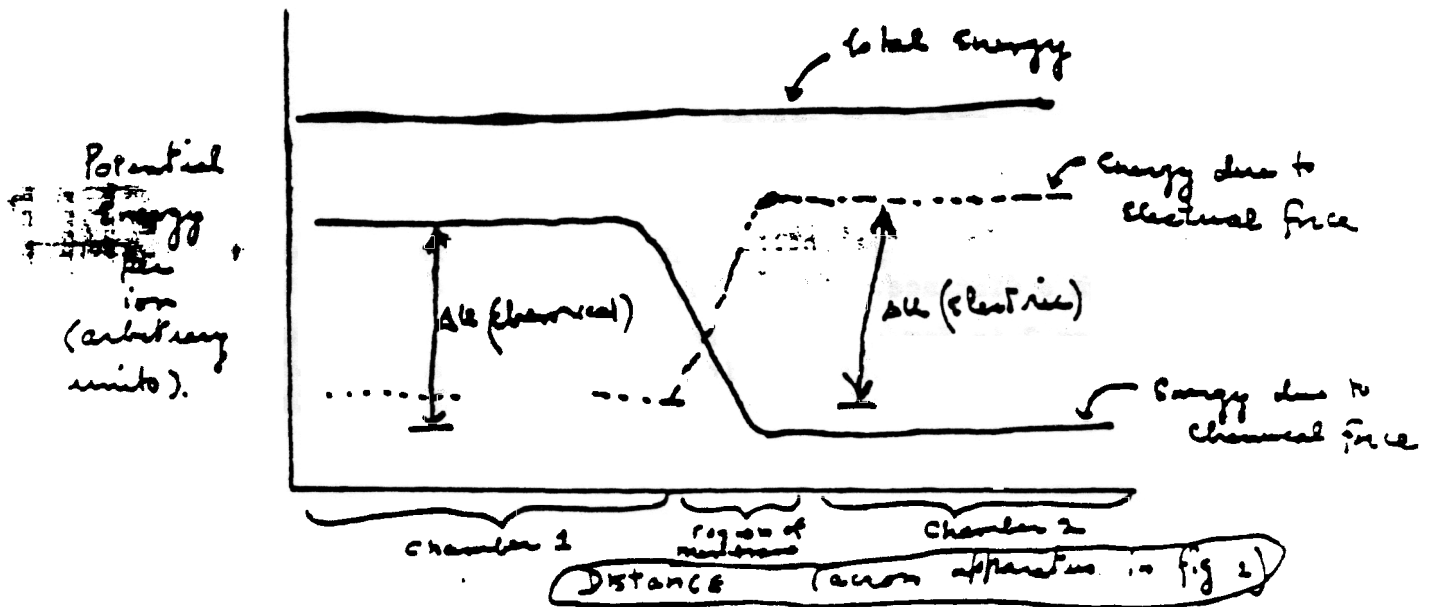 Total Energy
Potential
Energy
per
ion
(arbitrary
units).
Energy due to
Electrical force
ΔU (Chemical)
ΔU (Electric)
Energy due to
Chemical Force
Chamber 1
region of
membrane
Chamber 2
Distance (across apparatus in fig 2)